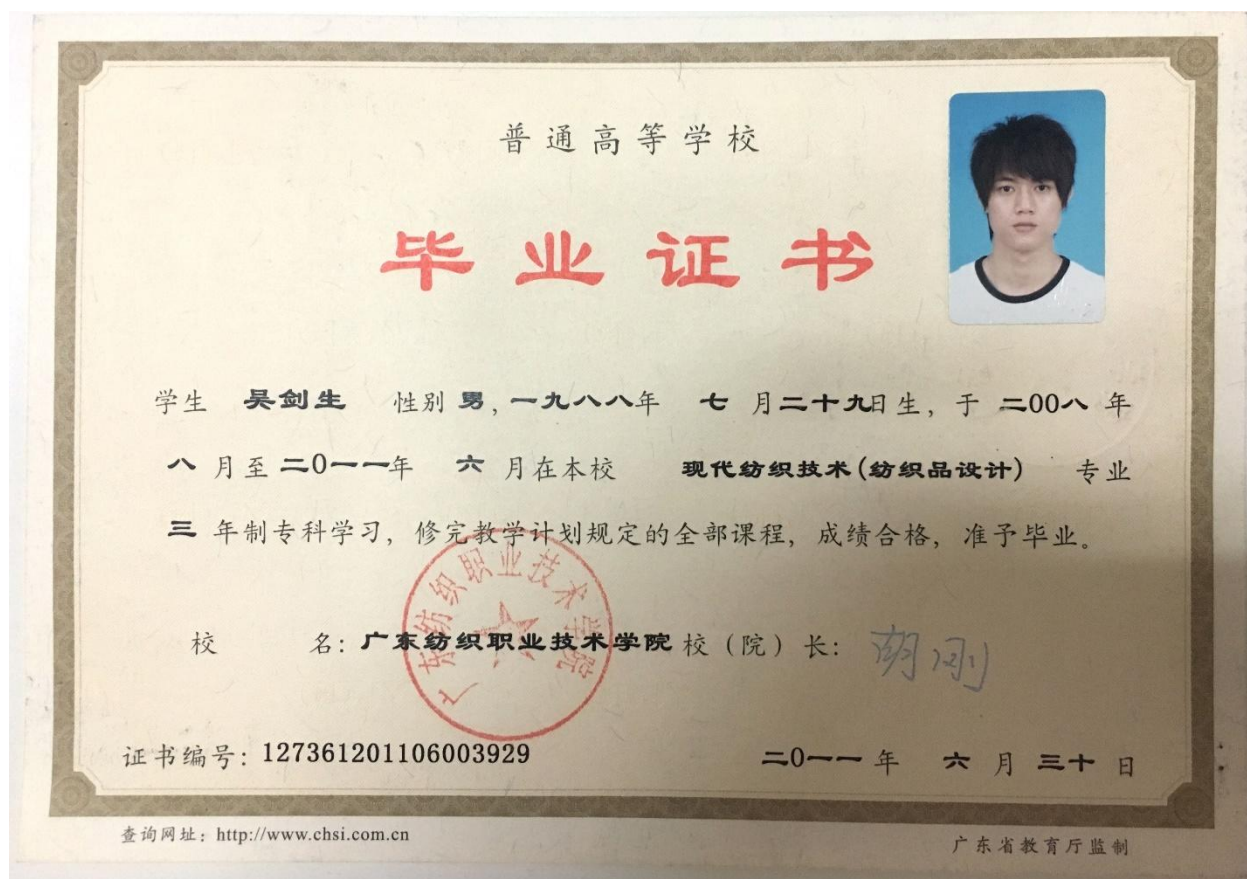 普通高等学校
毕业证书
学生 吴剑生 性别 男，一九八八年 七 月二十九日生，于 二00八 年
八 月至 二0一一年 六 月在本校 现代纺织技术(纺织品设计) 专业
三 年制专科学习，修完教学计划规定的全部课程，成绩合格，准予毕业。
广东纺织职业技术学院
校 名：广东纺织职业技术学院 校（院）长：胡刚
证书编号：127361201106003929 二0一一 年 六 月 三十 日
查询网址：http://www.chsi.com.cn 广东省教育厅监制